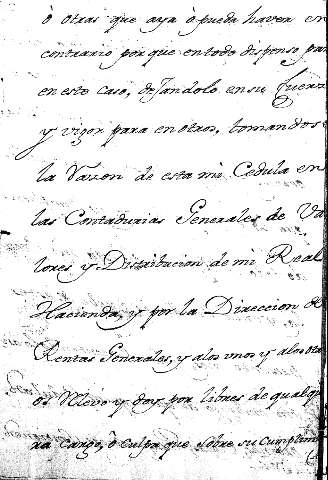 ò otras que aya ò pueda haver en
contrario por que en todo dispenso para
en este caso, dejandolo en su fuerza
y vigor para en otros, tomandose
la Razon de esta mi Cedula en
las Contadurias Generales de Va
lores, y Distribucion de mi Real
Hacienda, y por la Direccion de
Rentas Generales, y alos unos y alos otros
os Relevo y doy por libres de qualqui
ra cargo, ò culpa que sobre su cumplim